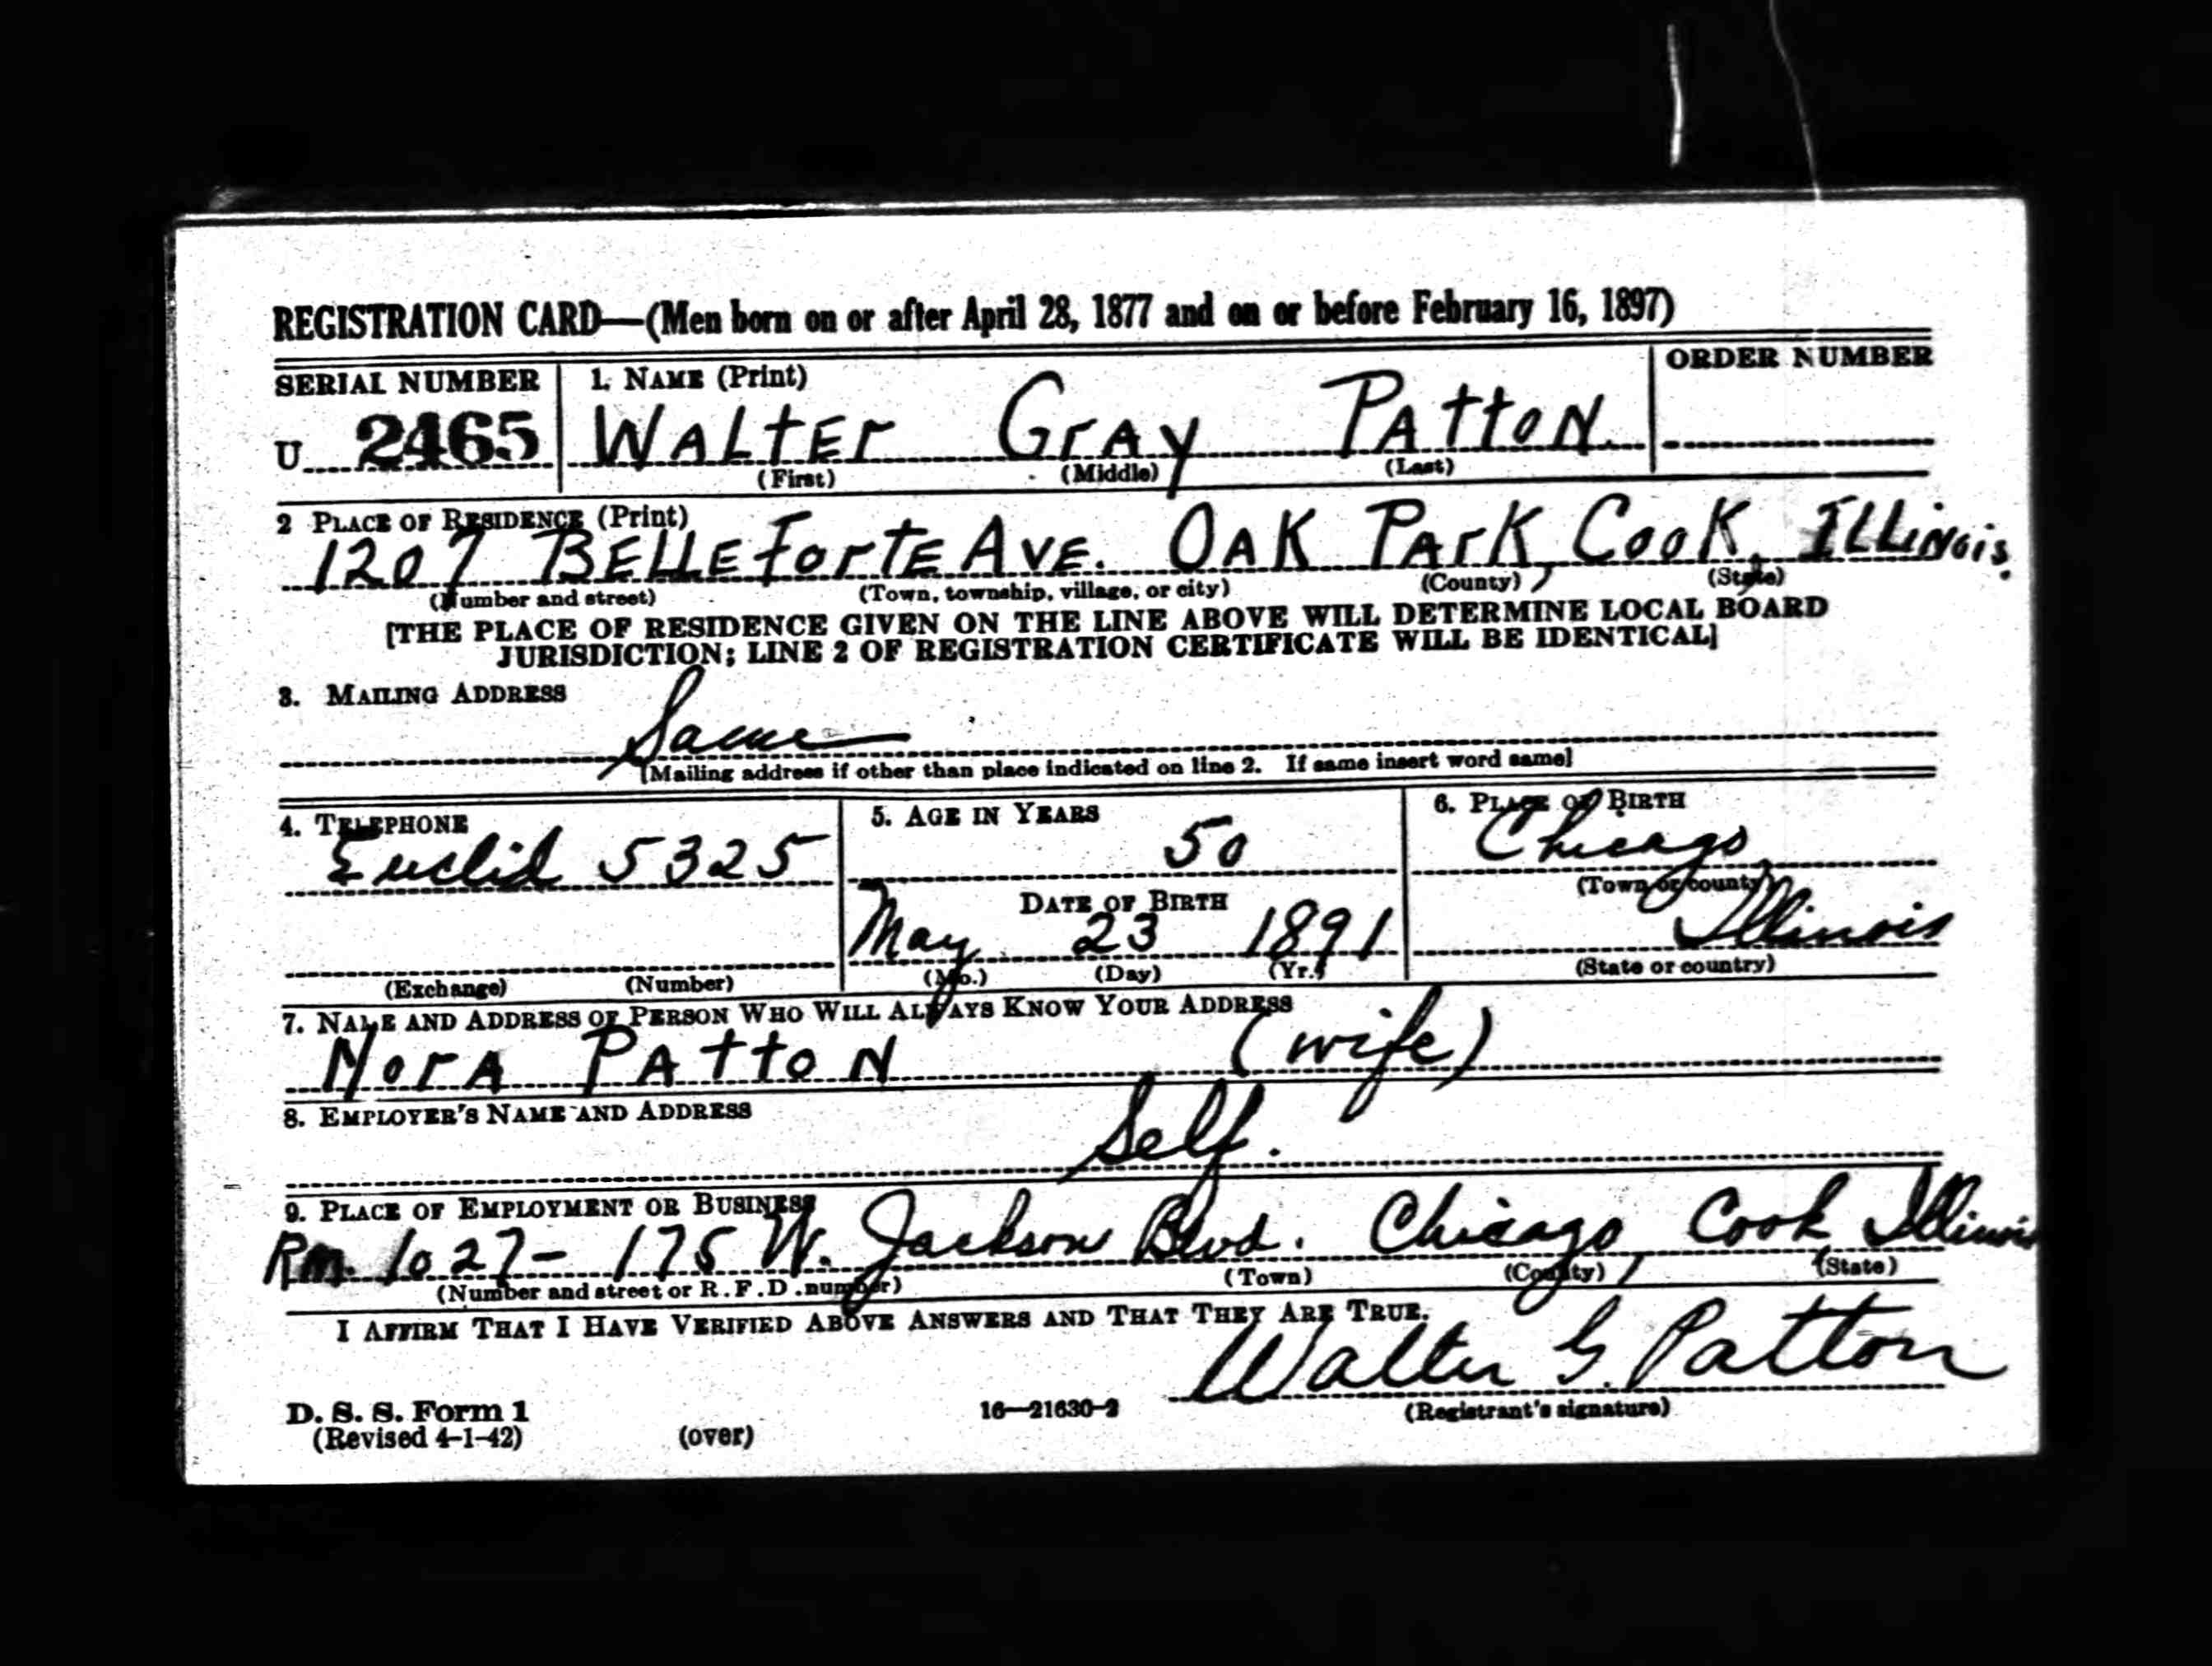 REGISTRATION CARD—(Men born on or after April 28, 1877 and on or before February 16, 1897)
SERIAL NUMBER 1. NAME (Print) ORDER NUMBER
U 2465 WALTER GRAY PATTON
(First) (Middle) (Last)
2 PLACE OF RESIDENCE (Print)
1207 BELLEFORTE AVE. OAK PARK, COOK, ILLINOIS.
(Number and street) (Town, township, village, or city) (County) (State)
[THE PLACE OF RESIDENCE GIVEN ON THE LINE ABOVE WILL DETERMINE LOCAL BOARD
JURISDICTION; LINE 2 OF REGISTRATION CERTIFICATE WILL BE IDENTICAL]
3. MAILING ADDRESS
Same
[Mailing address if other than place indicated on line 2. If same insert word same]
4. TELEPHONE 5. AGE IN YEARS 6. PLACE OF BIRTH
Euclid 5325 50 Chicago,
(Town or county)
DATE OF BIRTH
May 23 1891 Illinois
(Exchange) (Number) (Mo.) (Day) (Yr.) (State or country)
7. NAME AND ADDRESS OF PERSON WHO WILL ALWAYS KNOW YOUR ADDRESS
NORA PATTON (wife)
8. EMPLOYER'S NAME AND ADDRESS
Self.
9. PLACE OF EMPLOYMENT OR BUSINESS
Rm. 1027- 175 W. Jackson Blvd. Chicago, Cook Illinois
(Number and street or R.F.D. number) (Town) (County) (State)
I AFFIRM THAT I HAVE VERIFIED ABOVE ANSWERS AND THAT THEY ARE TRUE.
Walter G. Patton
D. S. S. Form 1 16—21630-2 (Registrant's signature)
(Revised 4-1-42) (over)